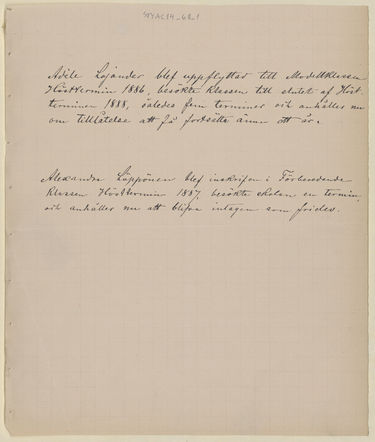 Adèle Lojander blef uppflyttad till Modellklassen
Hösttermin 1886, besökte klassen till slutet af Höst
terminen 1888, således fem terminer och anhåller nu
om tillåtelse att få fortsätta ännu ett år.
Alexandra Läppönen blef inskrifven i Förberedande
klassen Hösttermin 1887, besökte skolan en termin,
och anhåller nu att blifva intagen som frielev.